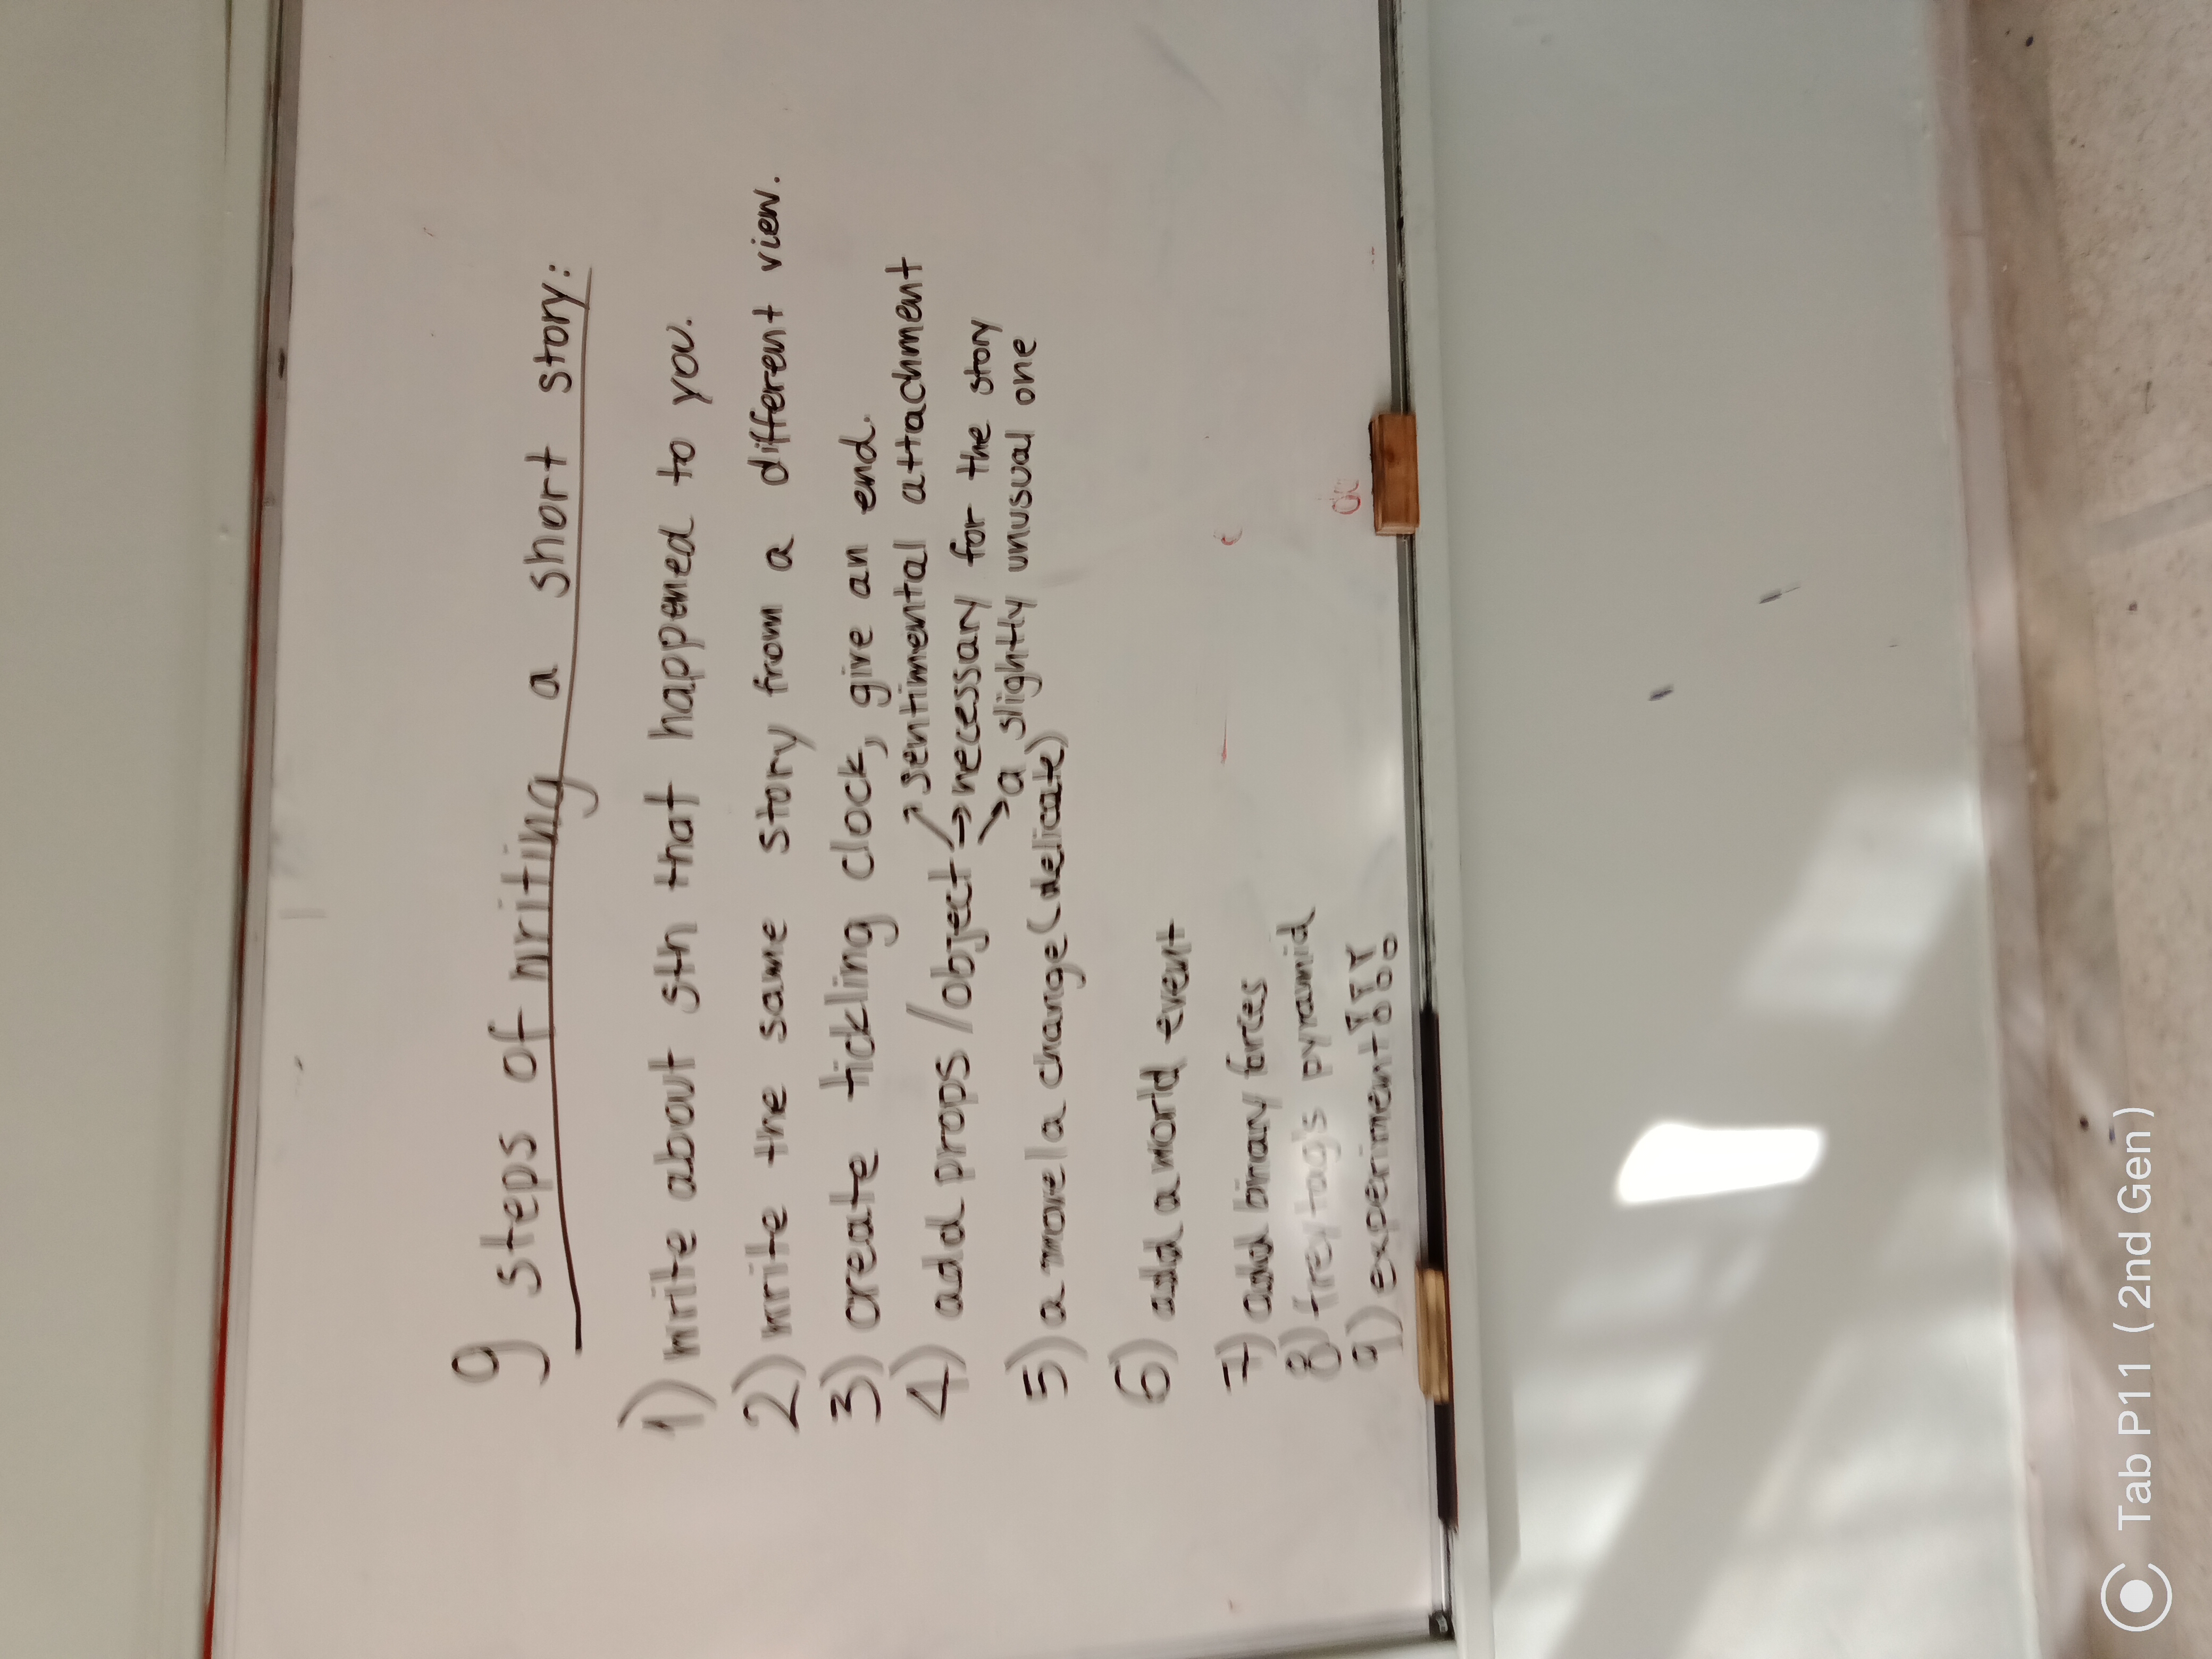 9 steps of writing a short story:
1) write about sth that happened to you.
2) write the same story from a different view.
3) create tickling clock, give an end.
4) add props/object → sentimental attachment
→ necessary for the story
→ a slightly unusual one
5) a move/a change (delicate)
6) add a world event
7) add binary forces
8) freytag's pyramid
9) experiment!!!
Tab P11 (2nd Gen)